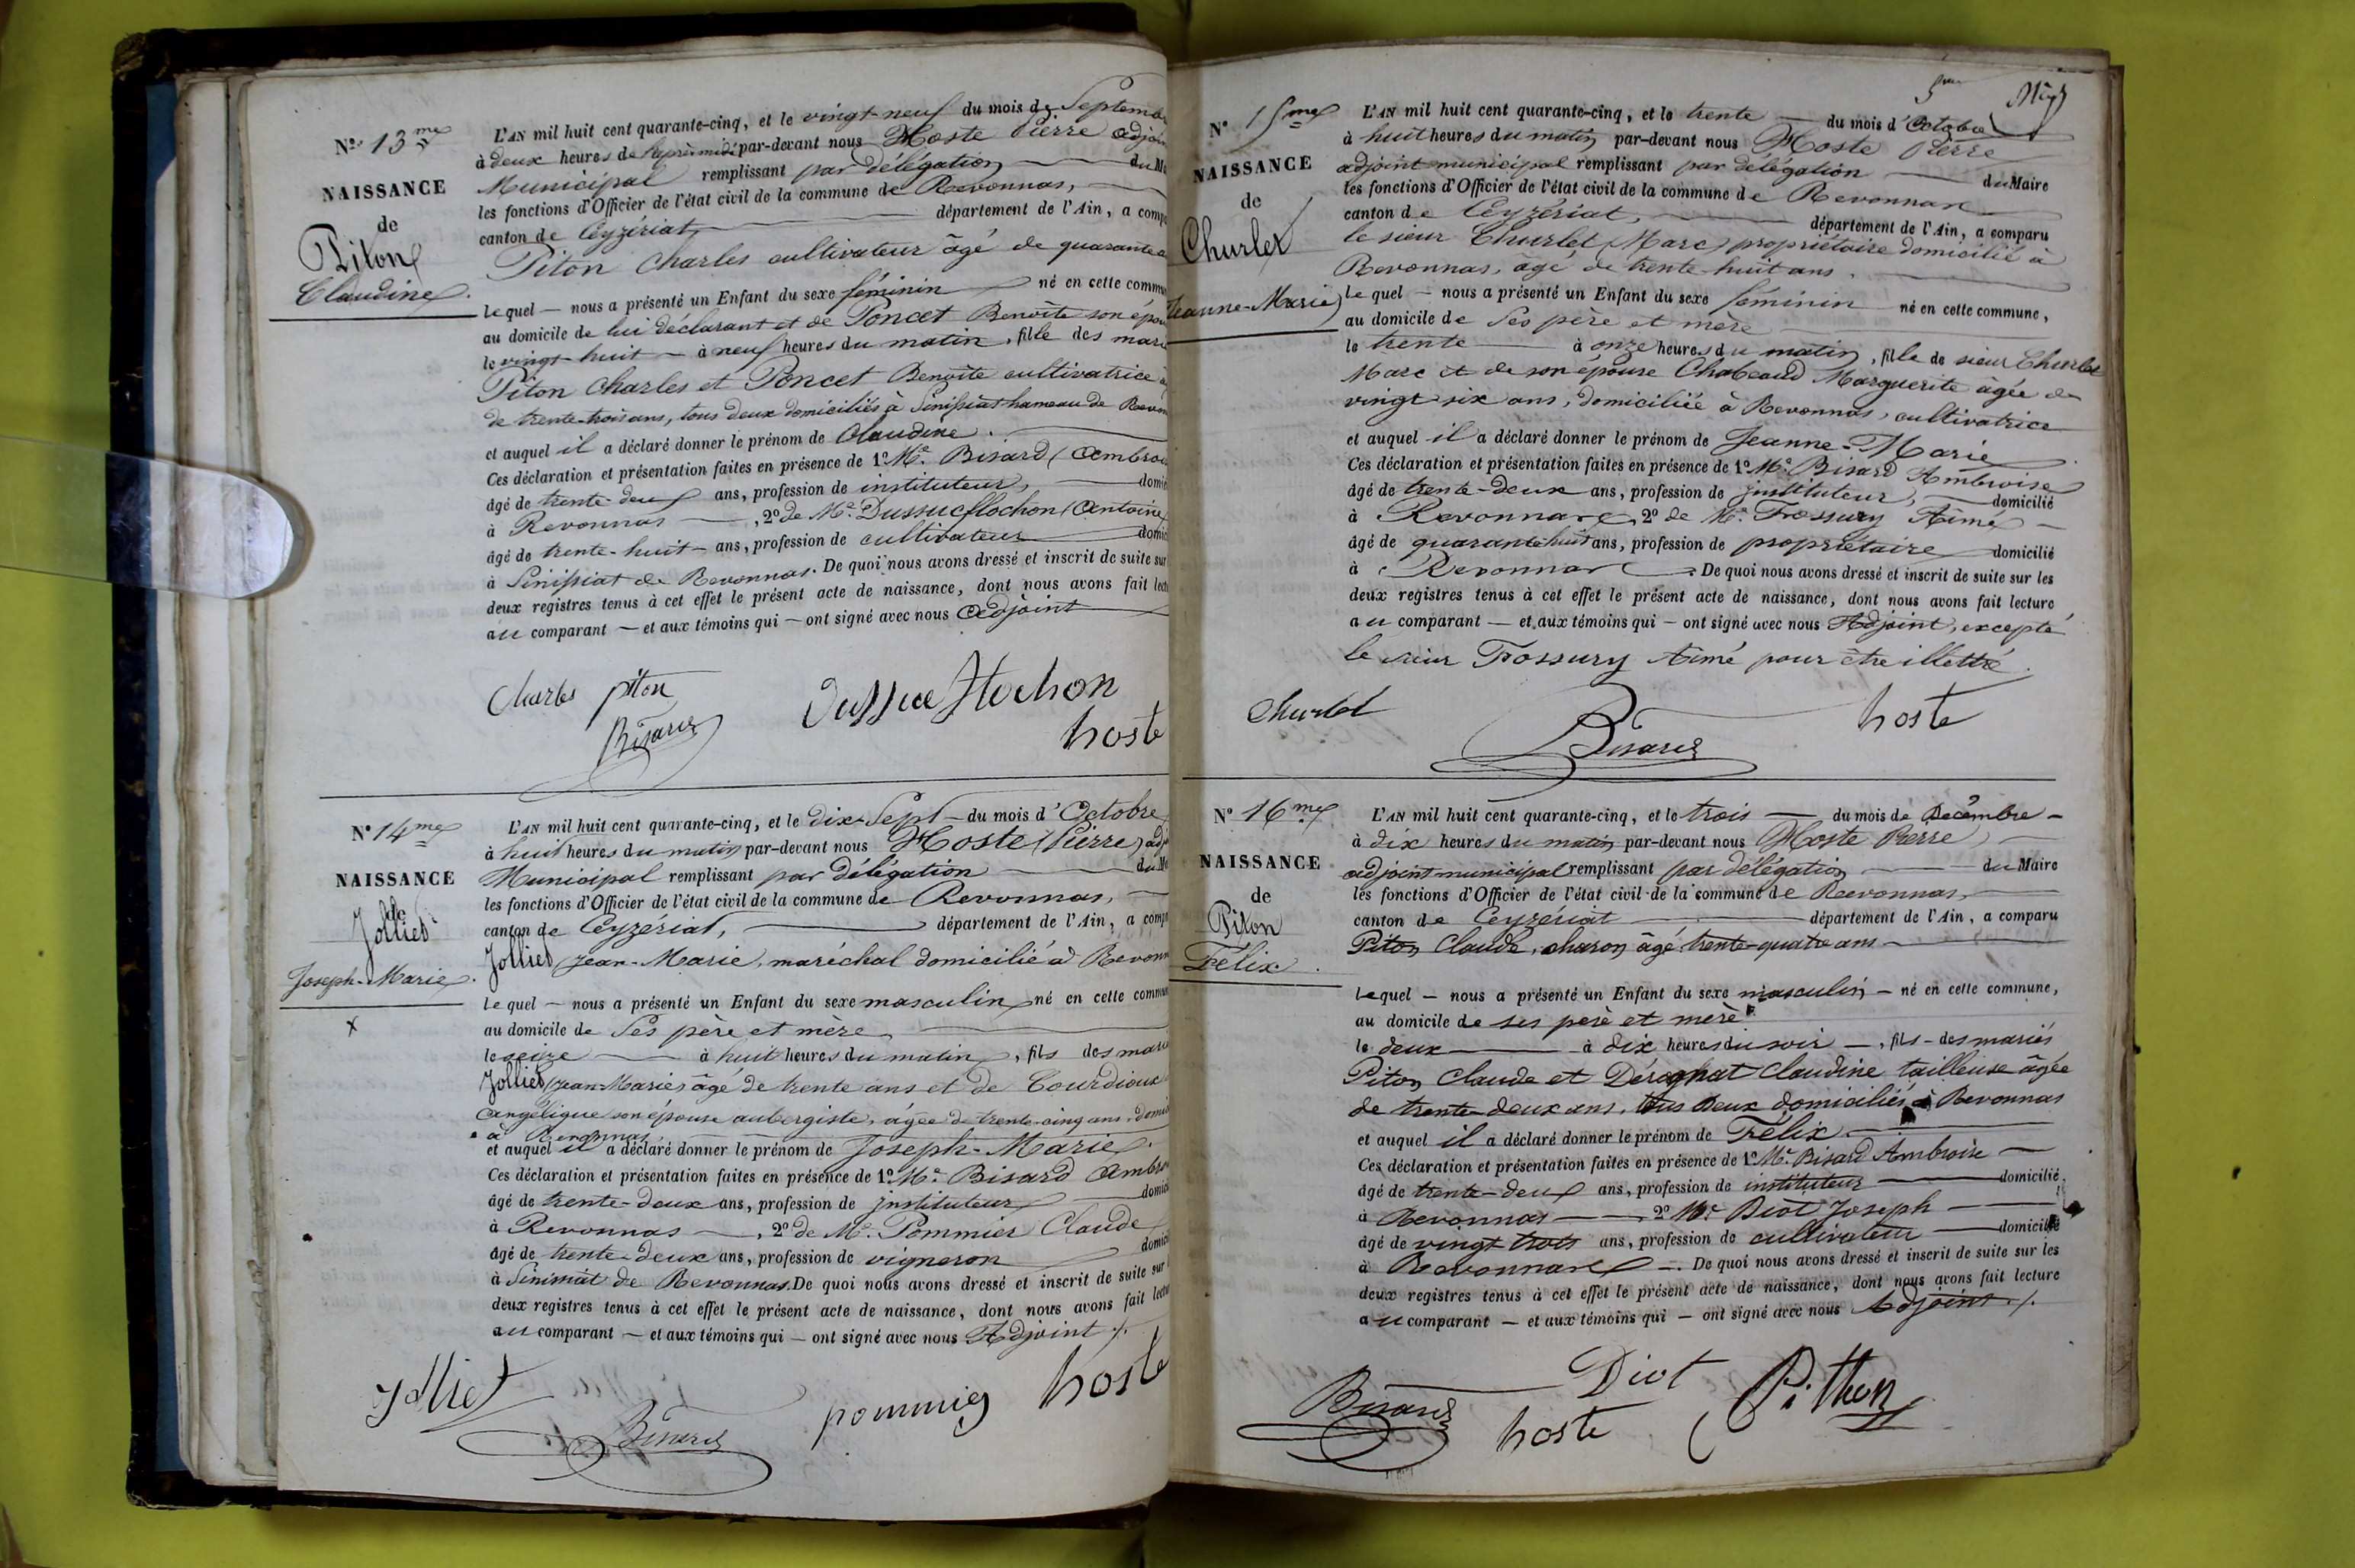 N° 13me
NAISSANCE
de
Piton
Claudine.
L'AN mil huit cent quarante-cinq, et le vingt-neuf du mois de Septemb
à deux heures de l'après midi par-devant nous Hoste Pierre adjoin
Municipal remplissant par délégation du M
les fonctions d'Officier de l'état civil de la commune de Revonnas,
canton de Ceyzériat, département de l'Ain, a comp
Piton Charles cultivateur âgé de quarante
lequel — nous a présenté un Enfant du sexe féminin né en cette commu
au domicile de lui déclarant et de Poncet Benoite son épou
le vingt-huit — à neuf heures du matin, fille des mari
Piton Charles et Poncet Benoite cultivatrice
de trente-trois ans, tous deux domiciliés à Sénissiat hameau de Revon
et auquel il a déclaré donner le prénom de Claudine.
Ces déclaration et présentation faites en présence de 1° Mr. Bisard (Ambroi
âgé de trente-deux ans, profession de instituteur, domi
à Revonnas —, 2° de Mr. Dussucflochon (Antoine
âgé de trente-huit — ans, profession de cultivateur domic
à Sénissiat de Revonnas. De quoi nous avons dressé et inscrit de suite sur
deux registres tenus à cet effet le présent acte de naissance, dont nous avons fait lect
au comparant — et aux témoins qui — ont signé avec nous Adjoint
Charles piton
Bisard
hoste
N° 14me
NAISSANCE
de
Jolliet
Joseph-Marie.
x
L'AN mil huit cent quarante-cinq, et le dix-Sept — du mois d'Octobre
à huit heures du matin par-devant nous Hoste (Pierre) adj
Municipal remplissant par délégation du M
les fonctions d'Officier de l'état civil de la commune de Revonnas,
canton de Ceyzériat, département de l'Ain, a comp
Jolliet (Jean-Marie, maréchal domicilié à Revonn
lequel — nous a présenté un Enfant du sexe masculin né en cette commu
au domicile de Ses père et mère
le seize — à huit heures du matin, fils des mari
Jolliet (Jean-Marie) âgé de trente ans et de Courdioux
Angélique son épouse aubergiste, âgée de trente-cinq ans, domi
à Revonnas
et auquel il a déclaré donner le prénom de Joseph-Marie.
Ces déclaration et présentation faites en présence de 1° Mr. Bisard Ambro
âgé de trente-deux ans, profession de instituteur domic
à Revonnas —, 2° de Mr. Pommier Claude
âgé de trente-deux ans, profession de vigneron domic
à Sénissiat de Revonnas. De quoi nous avons dressé et inscrit de suite sur
deux registres tenus à cet effet le présent acte de naissance, dont nous avons fait lectu
au comparant — et aux témoins qui — ont signé avec nous Adjoint ./.
Jolliet
Bisard
pommier
hoste
5me
N° 15me
NAISSANCE
de
Churlet
Jeanne-Marie
L'AN mil huit cent quarante-cinq, et le trente — du mois d'Octobre
à huit heures du matin par-devant nous Hoste Pierre
adjoint municipal remplissant par délégation — du Maire
les fonctions d'Officier de l'état civil de la commune de Revonnas
canton de Ceyzériat, département de l'Ain, a comparu
le sieur Churlet (Marc) propriétaire domicilié à
Revonnas, âgé de trente-huit ans.
lequel — nous a présenté un Enfant du sexe féminin né en cette commune,
au domicile de Ses père et mère
le trente — à onze heures du matin, fille de sieur Churlet
Marc et de son épouse Chabeaud Marguerite âgée de
vingt six ans, domiciliée à Revonnas, cultivatrice
et auquel il a déclaré donner le prénom de Jeanne-Marie.
Ces déclaration et présentation faites en présence de 1° Mr. Bisard Ambroise
âgé de trente-deux ans, profession de instituteur, domicilié
à Revonnas, 2° de Mr. Fossury Aimé —
âgé de quarante huit ans, profession de propriétaire domicilié
à Revonnas. De quoi nous avons dressé et inscrit de suite sur les
deux registres tenus à cet effet le présent acte de naissance, dont nous avons fait lecture
au comparant — et aux témoins qui — ont signé avec nous Adjoint, excepté
le sieur Fossury Aimé pour être illettré.
Churlet
Bisard
hoste
N° 16me
NAISSANCE
de
Piton
Félix.
L'AN mil huit cent quarante-cinq, et le trois — du mois de Décembre —
à dix heures du matin par-devant nous Hoste Pierre
adjoint municipal remplissant par délégation — du Maire
les fonctions d'Officier de l'état civil de la commune de Revonnas,
canton de Ceyzériat département de l'Ain, a comparu
Piton Claude, charon âgé trente-quatre ans —
lequel — nous a présenté un Enfant du sexe masculin — né en cette commune,
au domicile de ses père et mère
le deux — à dix heures du soir —, fils — des mariés
Piton Claude et Dérognat Claudine tailleuse âgée
de trente-deux ans, tous deux domiciliés à Revonnas
et auquel il a déclaré donner le prénom de Félix.
Ces déclaration et présentation faites en présence de 1° Mr. Bisard Ambroise —
âgé de trente-deux ans, profession de instituteur — domicilié
à Revonnas — 2° Mr. Diot Joseph —
âgé de vingt-trois ans, profession de cultivateur — domicilié
à Revonnas —. De quoi nous avons dressé et inscrit de suite sur les
deux registres tenus à cet effet le présent acte de naissance, dont nous avons fait lecture
au comparant — et aux témoins qui — ont signé avec nous Adjoint ./.
Bisard
Diot
hoste
Pithon